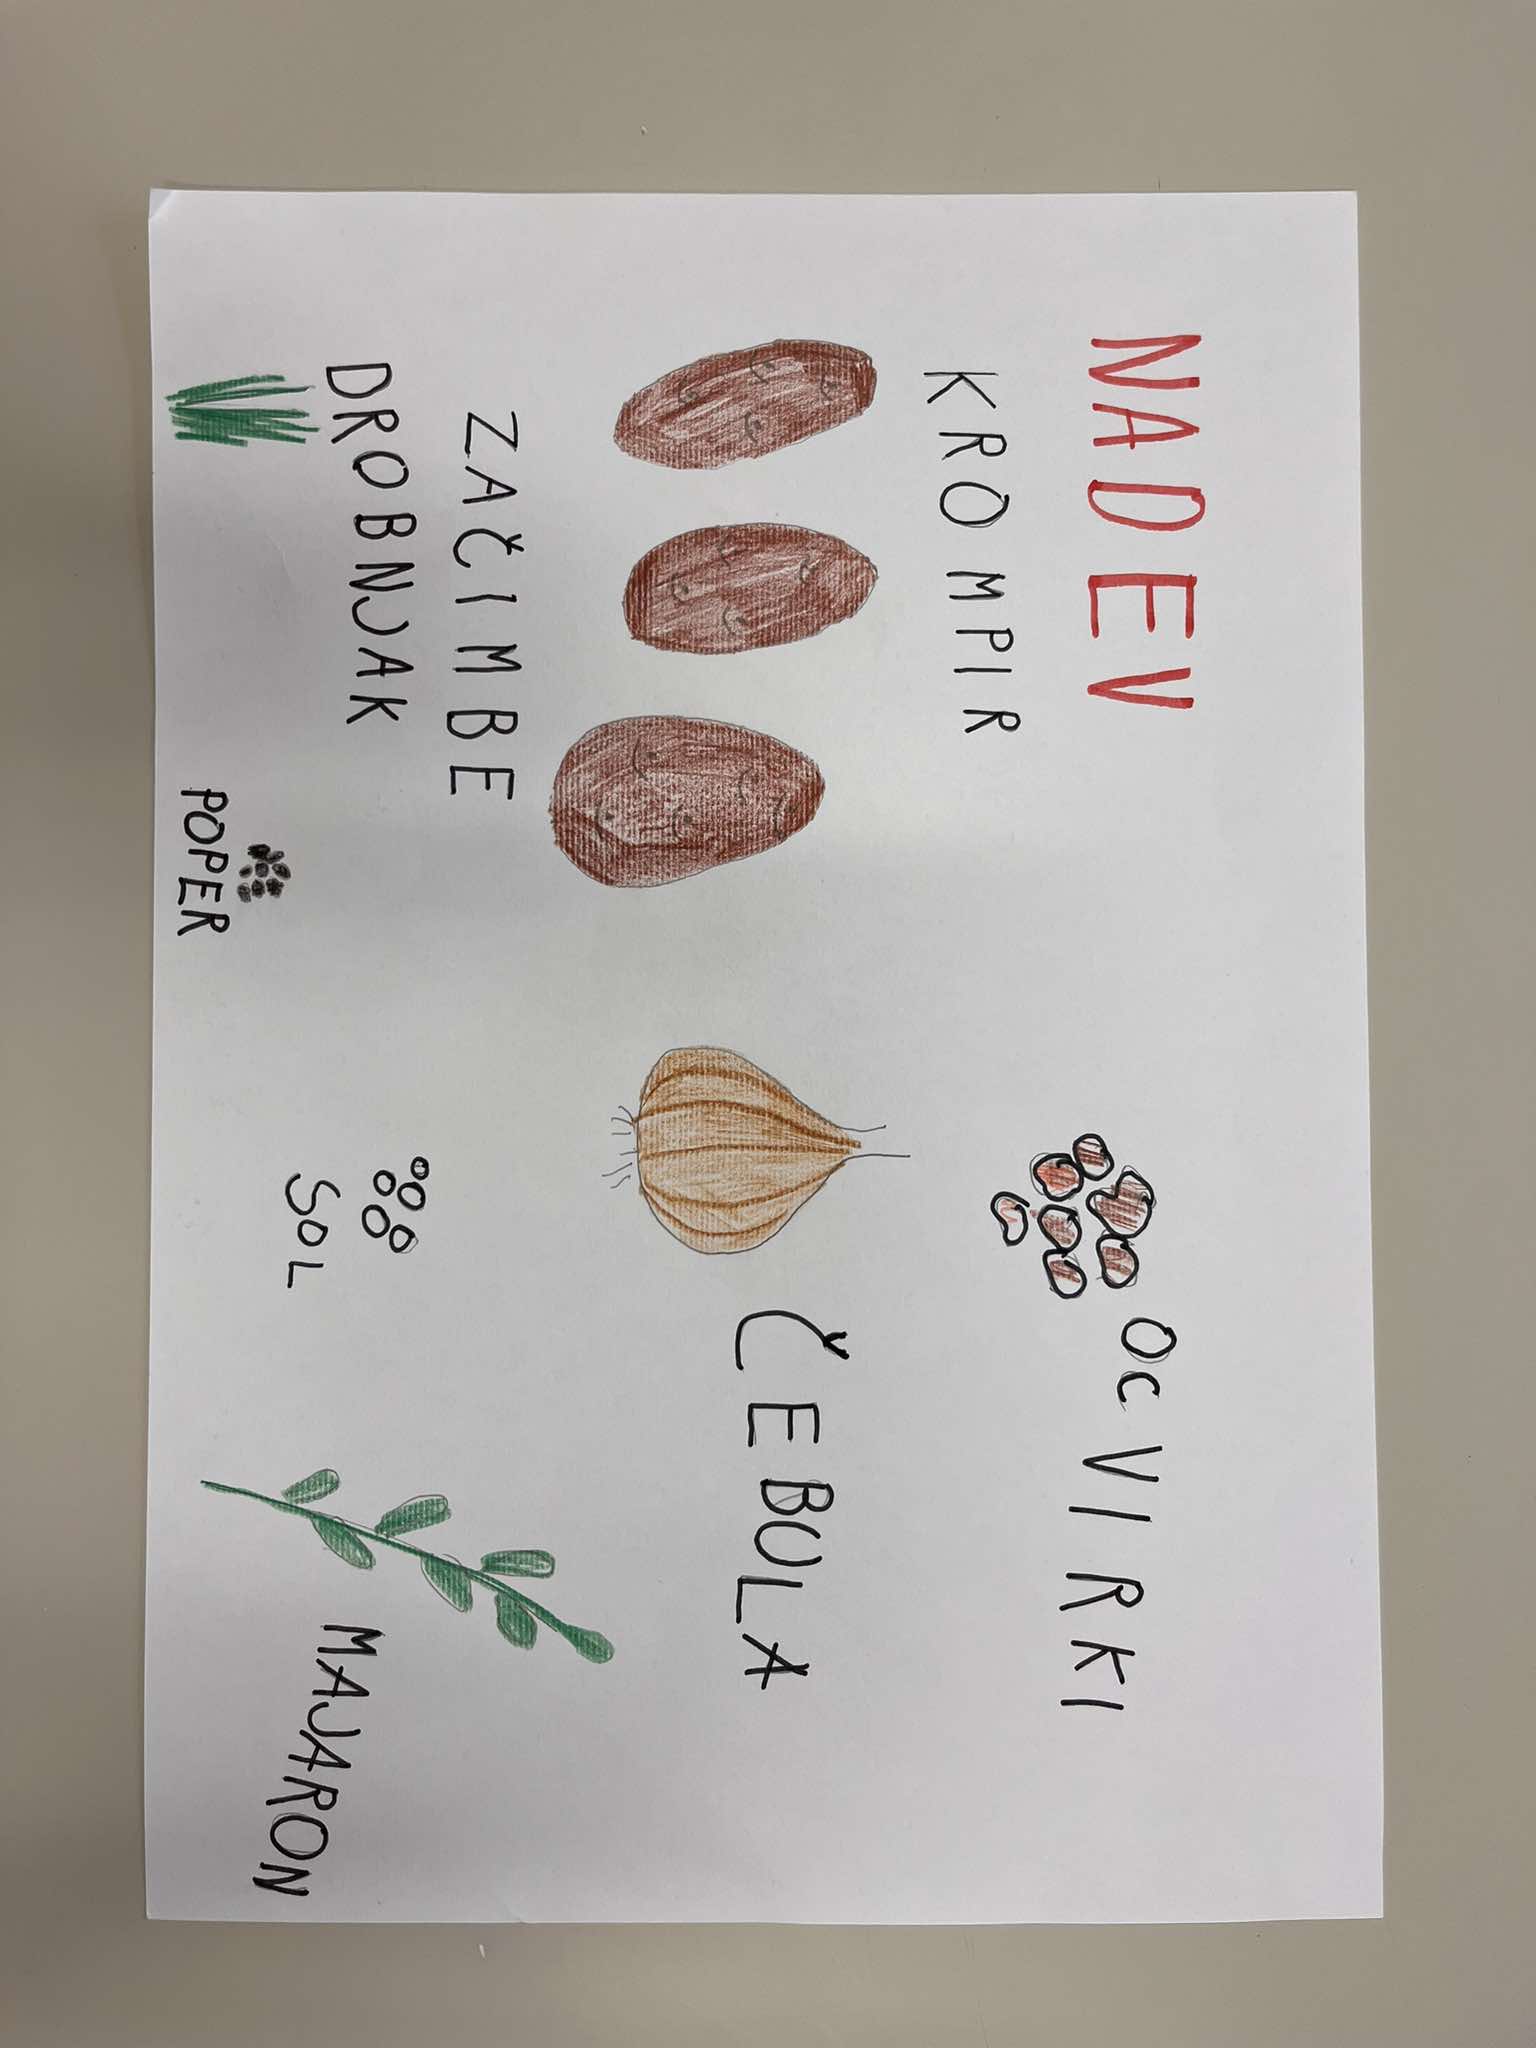 NADEV
KROMPIR
OCVIRKI
ČEBULA
ZAČIMBE
DROBNJAK
POPER
SOL
MAJARON